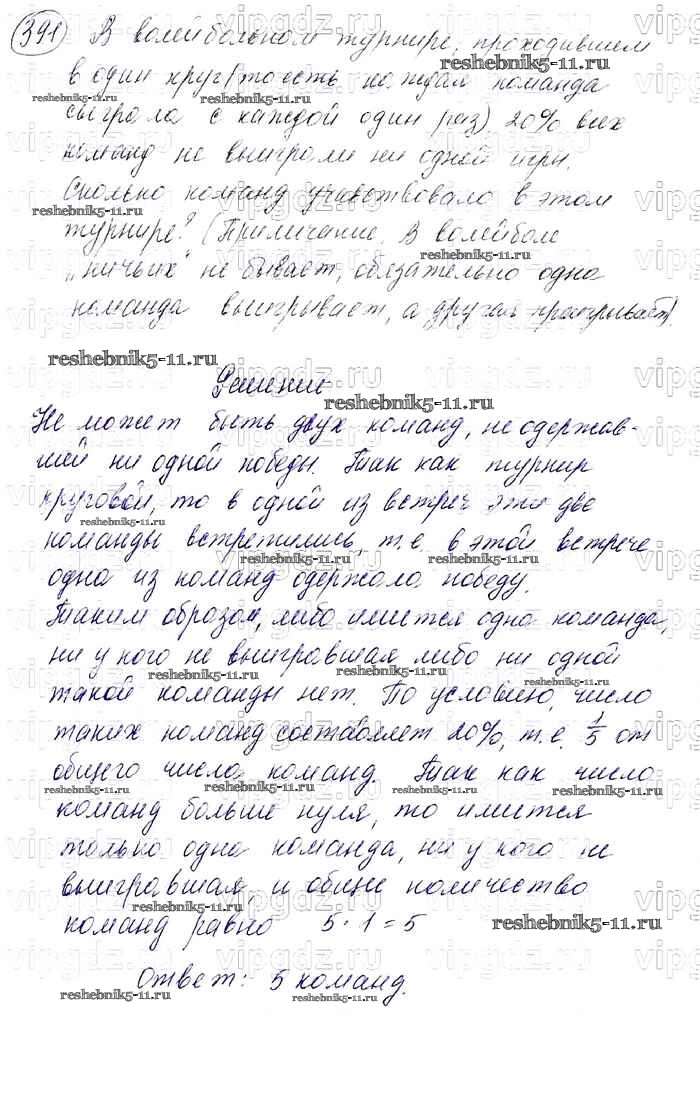 391 В волейбольном турнире, проходившем
в один круг (то есть каждая команда
сыграла с каждой один раз) 20% всех
команд не выиграли ни одной игры.
Сколько команд участвовало в этом
турнире? (Примечание. В волейболе
„ничьих" не бывает, обязательно одна
команда выигрывает, а другая проигрывает).
Решение
Не может быть двух команд, не одержав-
шей ни одной победы. Так как турнир
круговой, то в одной из встреч эти две
команды встретились, т.е. в этой встрече
одна из команд одержала победу.
Таким образом, либо имеется одна команда,
ни у кого не выигравшая либо ни одной
такой команды нет. По условию, число
таких команд составляет 20%, т.е. 1/5 от
общего числа команд. Так как число
команд больше нуля, то имеется
только одна команда, ни у кого не
выигравшая, и общее количество
команд равно 5 · 1 = 5
Ответ: 5 команд.
reshebnik5-11.ru
vipgdz.ru